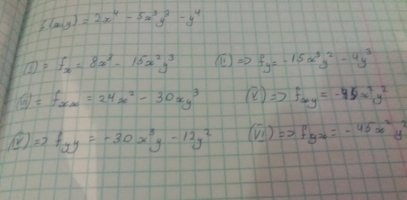 f(x,y) = 2x⁴ - 5x³y³ - y⁴
(I) = fₓ = 8x³ - 15x²y³ (II) => f_y = -15x³y² - 4y³
(III) = fₓₓ = 24x² - 30xy³ (V) => f_xy = -45x²y²
(IV) => f_yy = -30x³y - 12y² (VI) => f_yx = -45x²y²